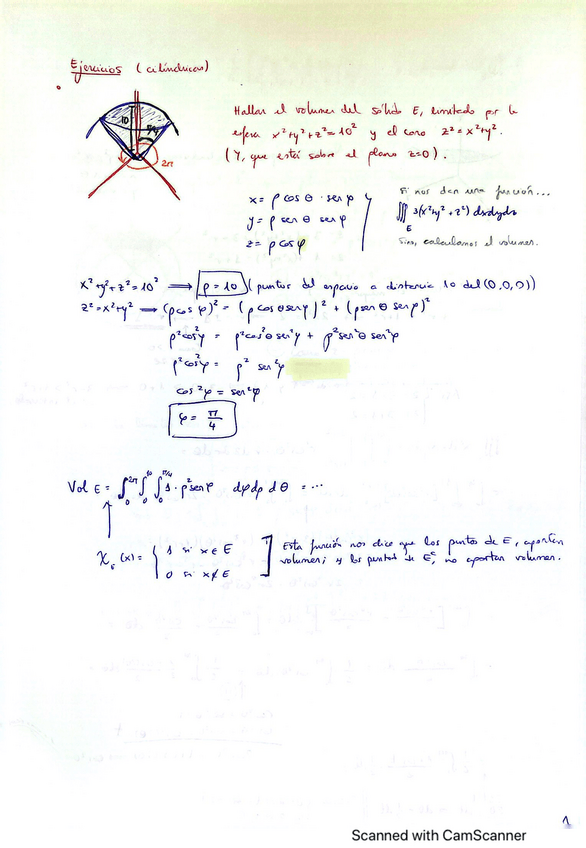 Ejercicios (cilíndricas)
10
π/4
2π
Hallar el volumen del sólido E, limitado por la
esfera x²+y²+z²=10² y el cono z²=x²+y².
(Y, que esté sobre el plano z=0).
x= ρ cos θ · sen φ
y= ρ sen θ sen φ
z= ρ cos φ
Si nos dan una función...
∭_E 3(x²+y²+z²) dxdydz
Sino, calculamos el volumen.
x²+y²+z²=10² ⟹ ρ=10 (puntos del espacio a distancia 10 del (0,0,0))
z²=x²+y² ⟹ (ρcos φ)² = (ρ cosθ sen φ)² + (ρ sen θ sen φ)²
ρ²cos²φ = ρ²cos²θ sen²φ + ρ²sen²θ sen²φ
ρ²cos²φ = ρ² sen²φ
cos²φ = sen²φ
φ = π/4
Vol E = ∫₀^2π ∫₀^10 ∫₀^π/4 1 · ρ² sen φ dφ dρ dθ = ...
χ_E (x) = { 1 si x∈E
0 si x∉E
Esta función nos dice que los puntos de E, aportan
volumen; y los puntos de E^c, no aportan volumen.
1
Scanned with CamScanner